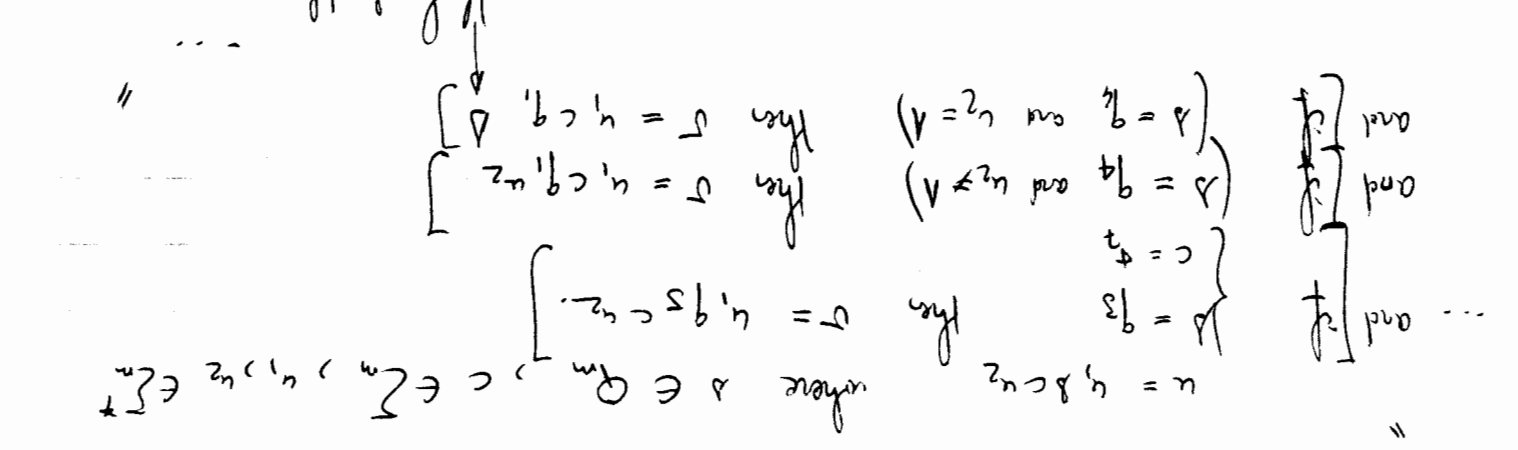 "
u = u₁ s c u₂ where s ∈ Qₘ, c ∈ Σₘ, u₁, u₂ ∈ Σₘ*
... and [if { s = q₃ then v = u₁ q₅ c u₂. ]
c =
and [if (s = q₄ and u₂ ≠ Λ) then v = u₁ c q₁ u₂ ]
and [if (s = q₄ and u₂ = Λ) then v = u₁ c q₁ Δ ]
" ...